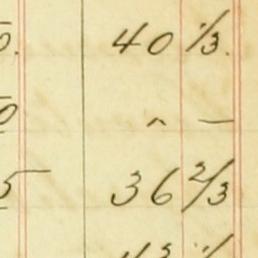 0. 40 1/3.
0 " —
5 — 36 2/3